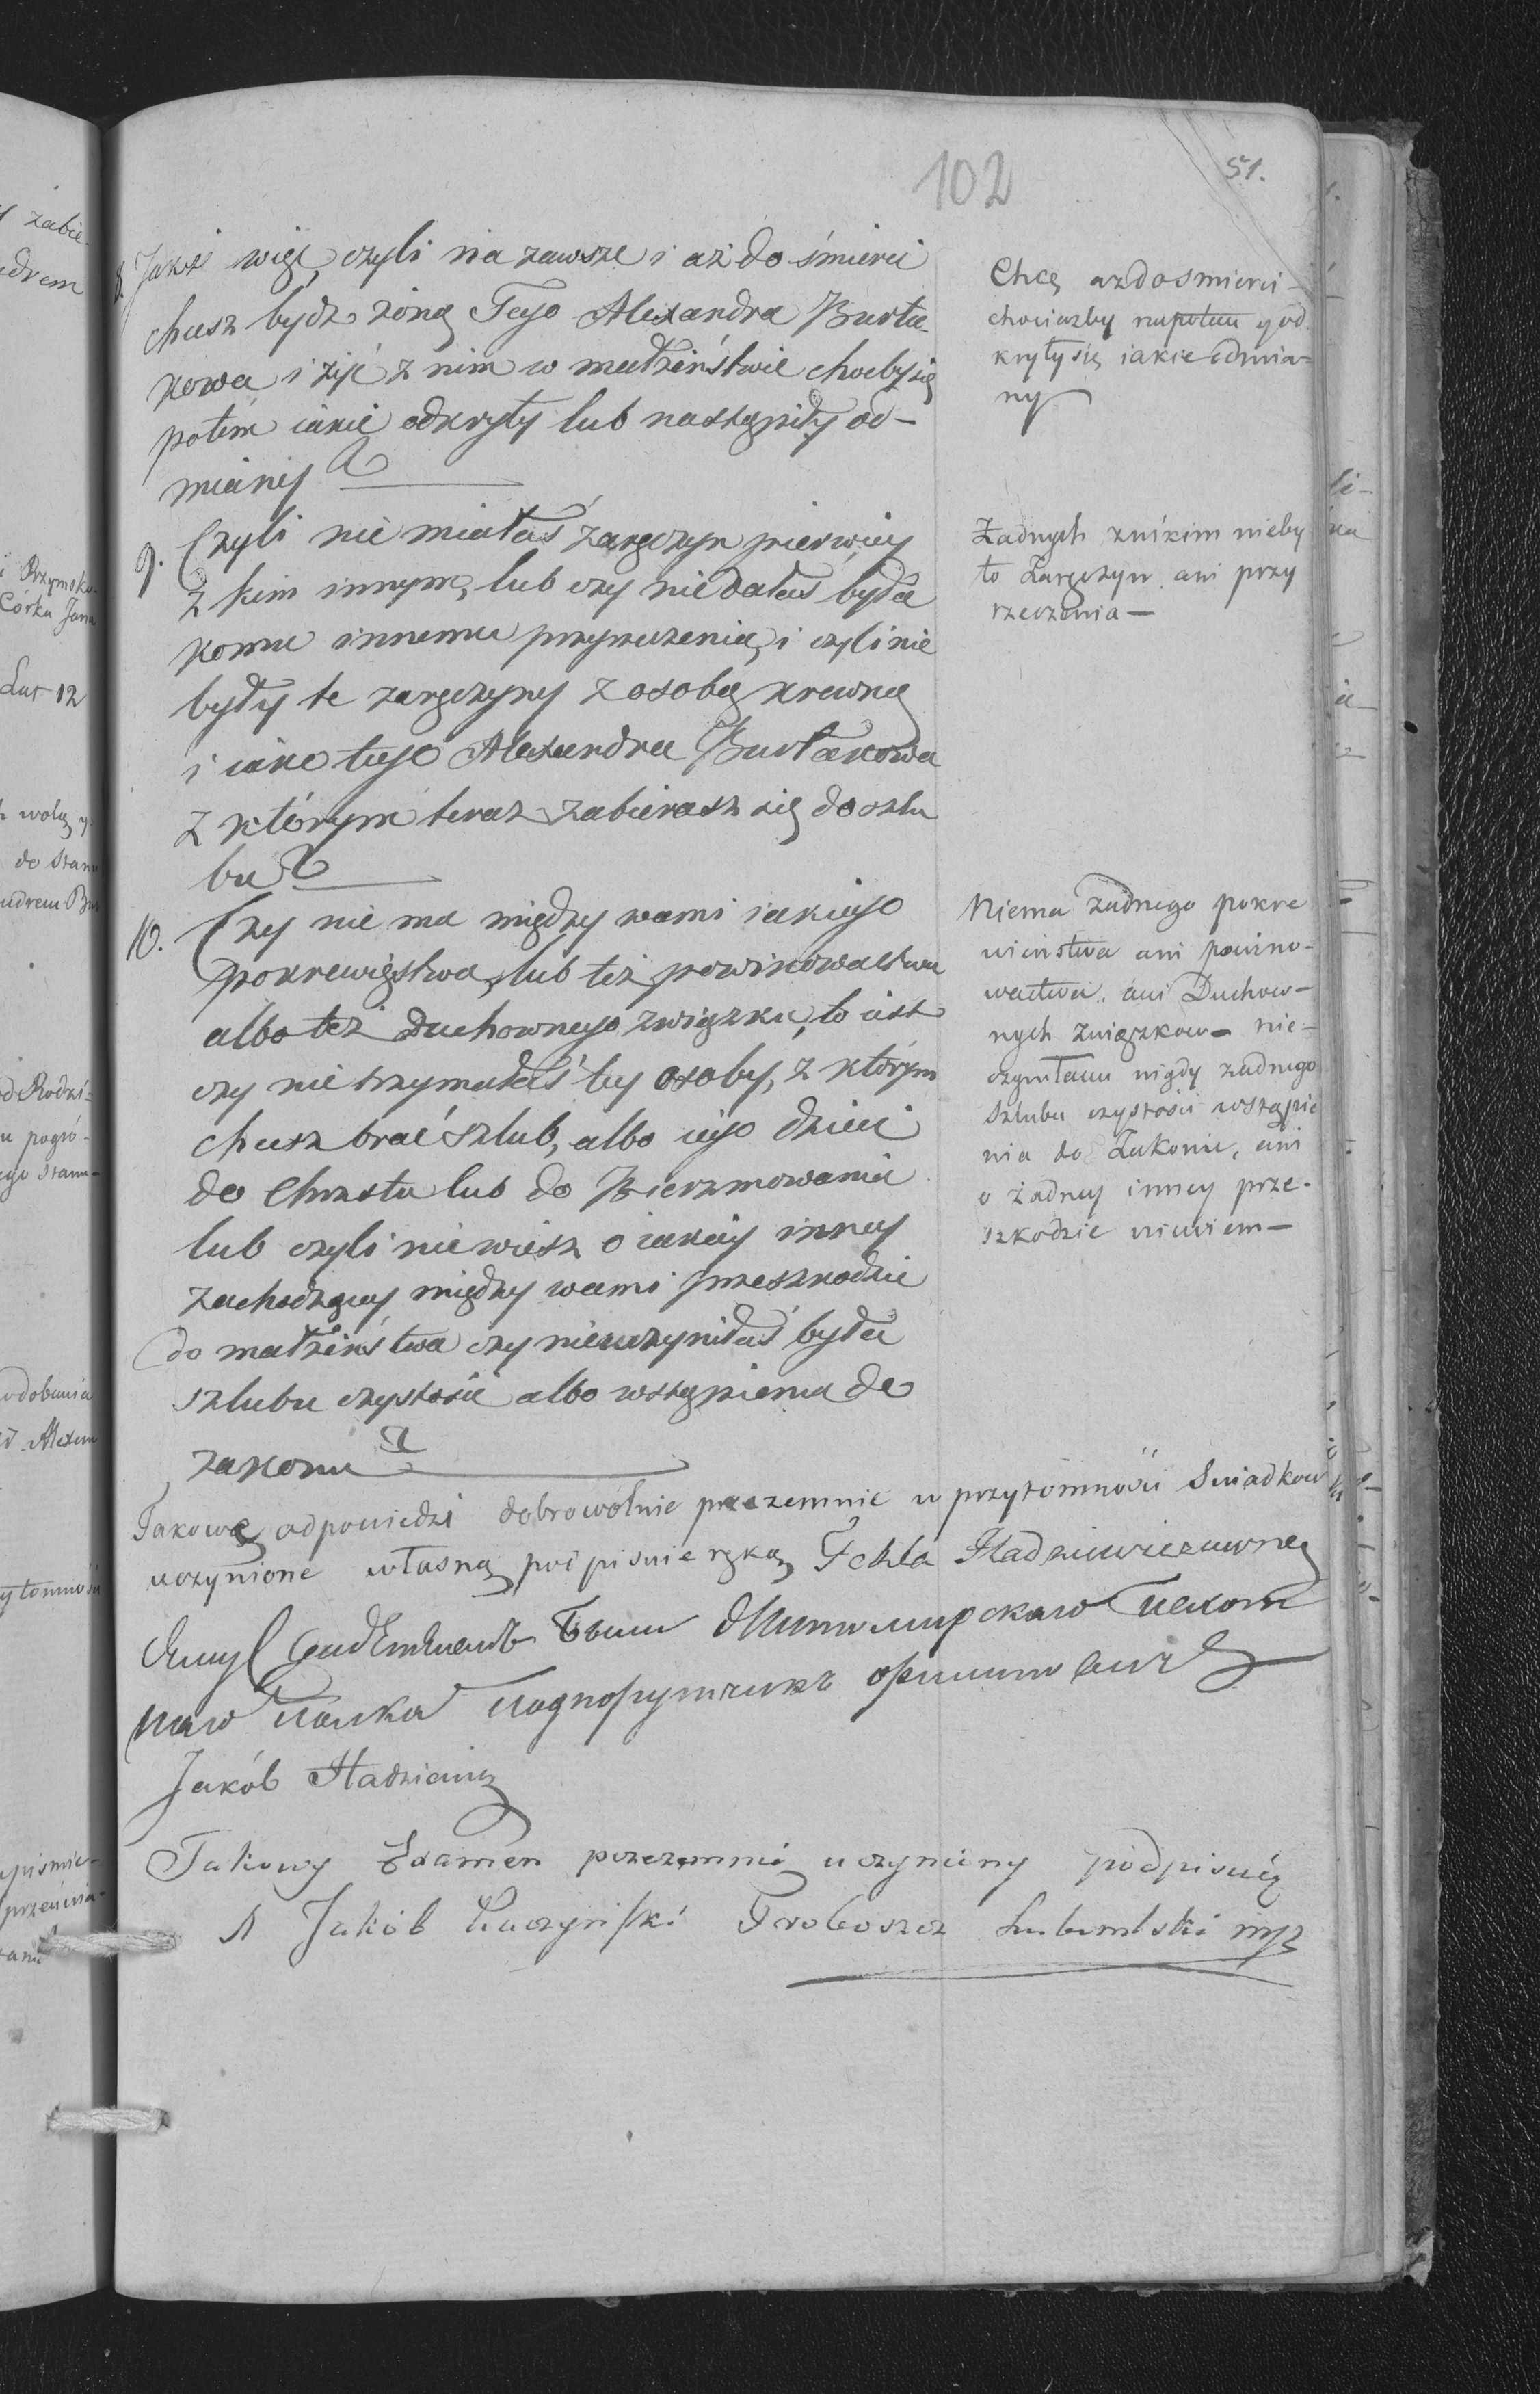 102
51.
8. Jakże więc, czyli na zawsze i aż do śmierci
chcesz bydź żoną Tego Alexandra Burła-
kowa i żyć z nim w małżeństwie choćby się
potem iakie odkryły lub nastąpiły od-
miany?
Chcę aż do smierci
chociażby napotem y od
kryły się iakie odmia-
ny
9. Czyli nie miałaś zaręczyn pierwiey
z kim innym, lub czy nie dałaś była
komu innemu przyrzeczenia, i czyli nie
były te zaręczyny z osobą krewną
i iako tego Alexandra Burłakowa
z którym teraz zabierasz się do szlu
bu?
Żadnych z nikim nieby
ło Zaręczyn ani przy
rzeczenia —
10. Czy nie ma między wami iakiego
pokrewięstwa, lub też powinowactwa
albo też duchownego związku, to iest
czy nie trzymałaś tey osoby, z którym
chcesz brać szlub, albo iego dzieci
do Chrztu lub do Bierzmowania
lub czyli nie wiesz o iakiey inney
zachodzącey między wami przeszkodzie
do małżeństwa czy nie uczyniłaś była
szlubu czystości albo wstąpienia do
zakonu?
Niema żadnego pokre
wieństwa ani powino-
wactwa, ani Duchow-
nych związkow — nie-
czyniłam nigdy żadnego
szlubu czystości wstąpie
nia do Zakonu, ani
o żadney inney prze-
szkodzie niewiem —
Takowe odpowiedzi dobrowolnie przezemnie w przytomności Swiadkow
uczynione własną podpisuie ręką Tekla Hadziewiczowna
Житомирскаго
полка
Jakób Hadziewicz
Takowy Examen przezemnie uczyniony podpisuię
X Jakób Kuczyński Proboszcz Lubomlski mp